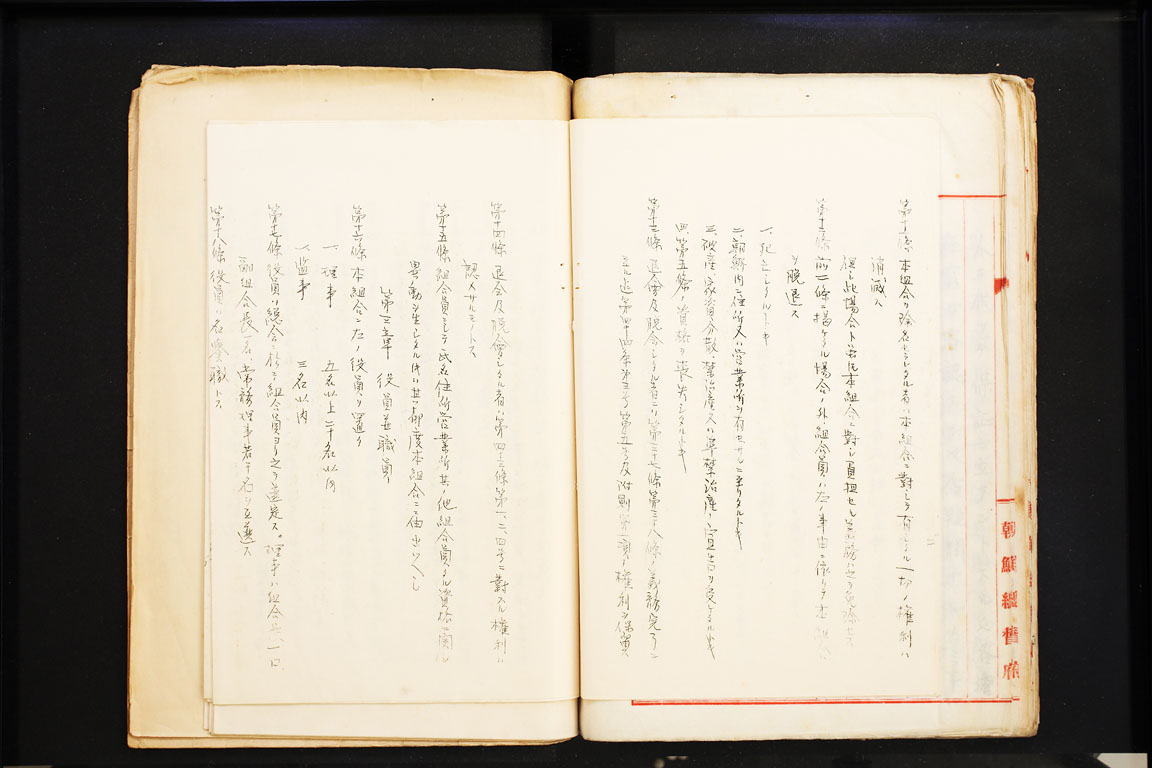 第十一條 本組合ヲ除名セラレタル者ハ本組合ニ對シテ有スル一切ノ權利ハ
消滅ス
但シ此場合ト雖モ本組合ニ對シ負担セル義務ハ之ヲ免除セス
第十二條 前一條ニ揚ケタル場合ノ外組合員ハ左ノ事由ニ依リテ本組合
ヲ脱退ス
一、死亡シタルトキ
二、朝鮮内ニ住所又ハ營業所ヲ有セサルニ至リタルトキ
三、破産、家資分散、禁治産又ハ準禁治産ノ宣告ヲ受ケタルトキ
四、第五條ノ資格ヲ喪失シタルトキ
第十三條 退會及脱會シタル者ニシテ第三十七條第三十八條ノ義務完了シ
タル迄第四十四條第三号第五号及附則第一項ノ權利ヲ保留
第十四條 退会及脱會シタル者ハ第四十三條第一、二、四号ニ對スル權利ハ
認メサルモノトス
第十五條 組合員ニシテ氏名住所營業所其ノ他組合員タル資格ニ関シ
異動ヲ生シタル時ハ其ノ都度本組合ニ届出ツヘシ
第三章 役員並職員
第十六條 本組合ニ左ノ役員ヲ置ク
一、理事 五名以上二十名以内
一、監事 三名以内
第十七條 役員ハ總会ニ於テ組合員ヨリ之ヲ選定ス。理事ハ組合長、一名、
副組合長一名、常務理事若干名ヲ互選ス
第十八條 役員ハ名譽職トス
朝鮮總督府